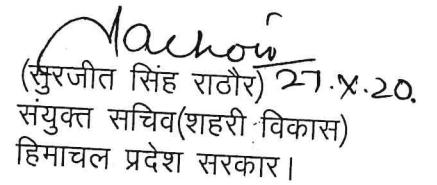 (सुरजीत सिंह राठौर) 27.X.20.
संयुक्त सचिव(शहरी विकास)
हिमाचल प्रदेश सरकार।